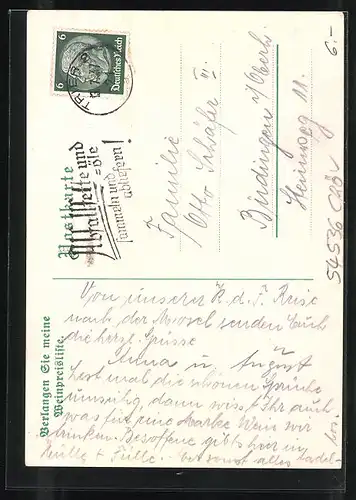 6
Deutsches Reich
TRIER
Postkarte
Altfette und
=öle
sammeln und
abliefern!
6.-
Familie
Otto Schäfer III.
Büdingen i/Oberh.
Heinweg 11.
54536 Cröv
Verlangen Sie meine
Weinpreisliste.
Von unserer K. d. F. Reise
nach der Mosel senden Euch
die herzl. Grüsse
Anna u. August
Lest mal die schönen Sprüche
umseitig, dann wisst Ihr auch
was für eine Marke Wein wir
trinken. Besoffene gibts hier in
Hülle & Fülle. Sonst alles tadel-
los.